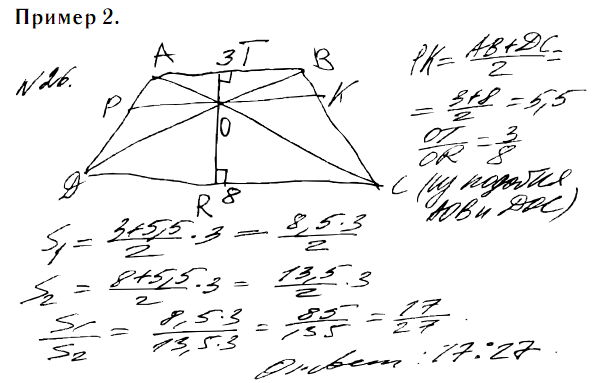 Пример 2.
N 26.
A 3 T B
P K
O
D R 8 C
PK = \frac{AB+DC}{2} =
= \frac{3+8}{2} = 5,5
\frac{OT}{OR} = \frac{3}{8}
(из подобия
AOB и DOC)
S_1 = \frac{3+5,5}{2} \cdot 3 = \frac{8,5 \cdot 3}{2}
S_2 = \frac{8+5,5}{2} \cdot 3 = \frac{13,5}{2} \cdot 3
\frac{S_1}{S_2} = \frac{8,5 \cdot 3}{13,5 \cdot 3} = \frac{85}{135} = \frac{17}{27}.
Ответ: 17:27.